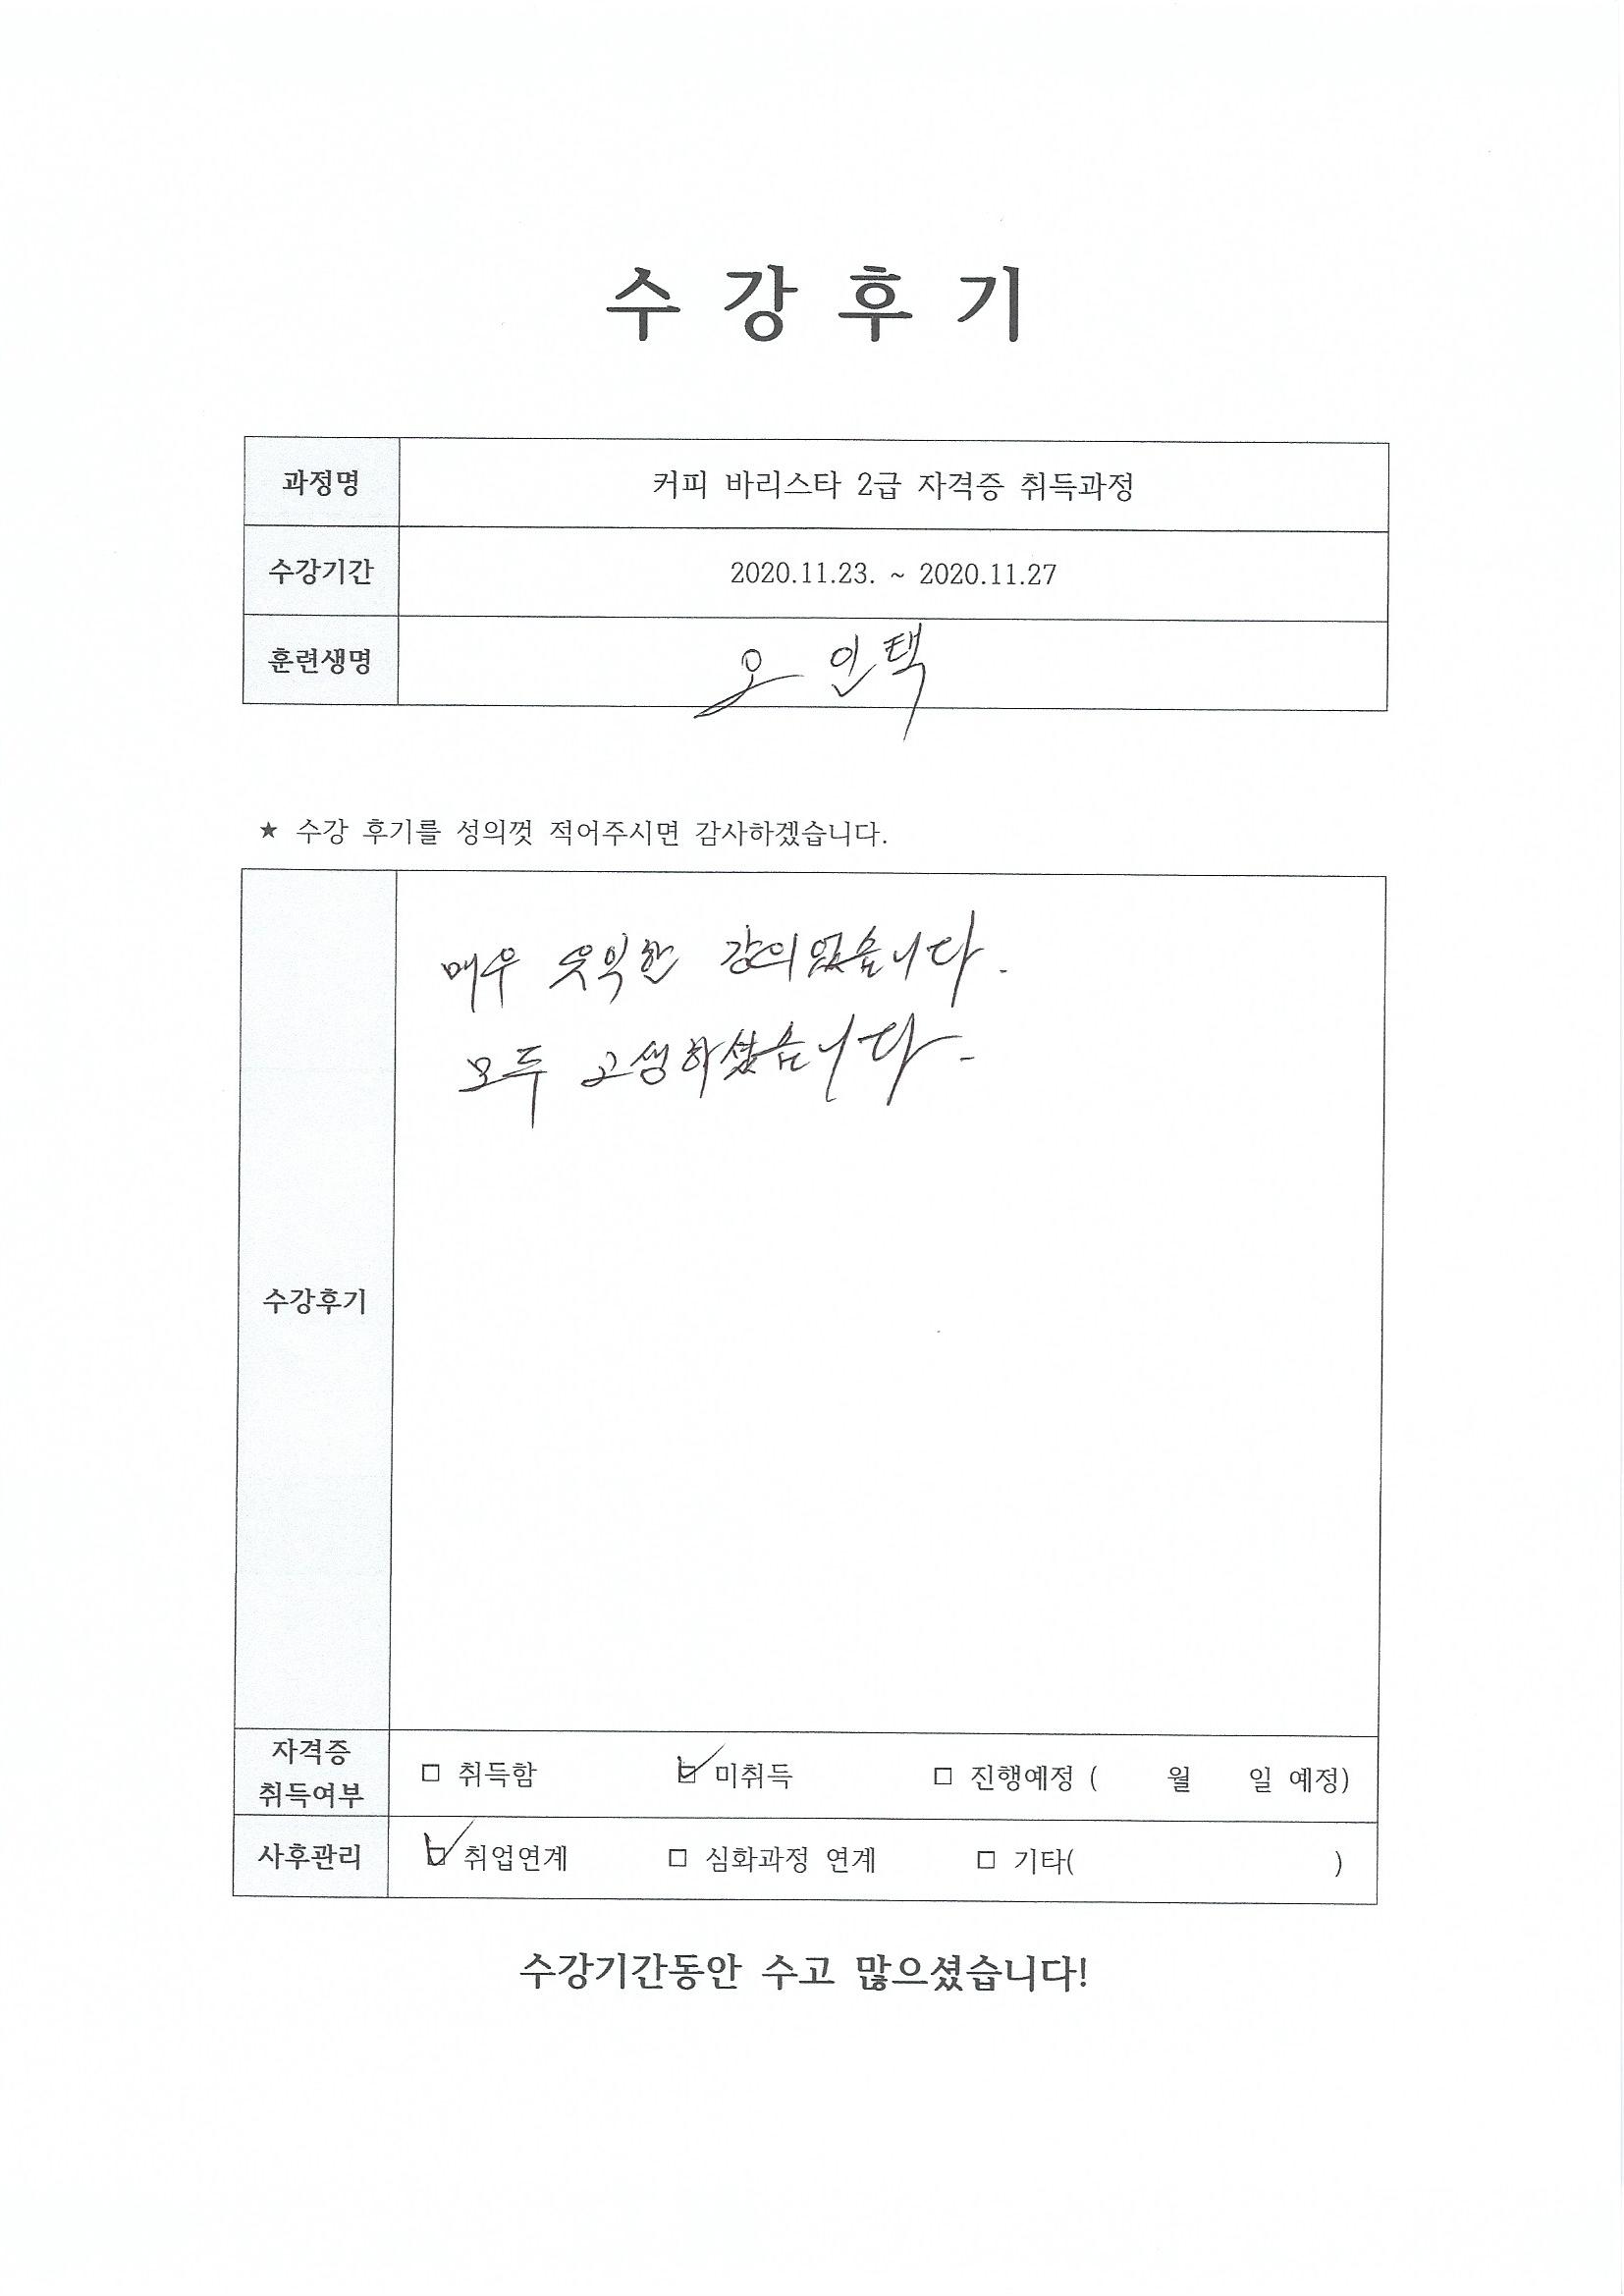 수 강 후 기
과정명 커피 바리스타 2급 자격증 취득과정
수강기간 2020.11.23. ~ 2020.11.27
훈련생명 오 인택
★ 수강 후기를 성의껏 적어주시면 감사하겠습니다.
매우 유익한 강의였습니다.
모두 고생하셨습니다.
수강후기
자격증
취득여부
□ 취득함 ☑ 미취득 □ 진행예정 ( 월 일 예정)
사후관리 ☑ 취업연계 □ 심화과정 연계 □ 기타( )
수강기간동안 수고 많으셨습니다!